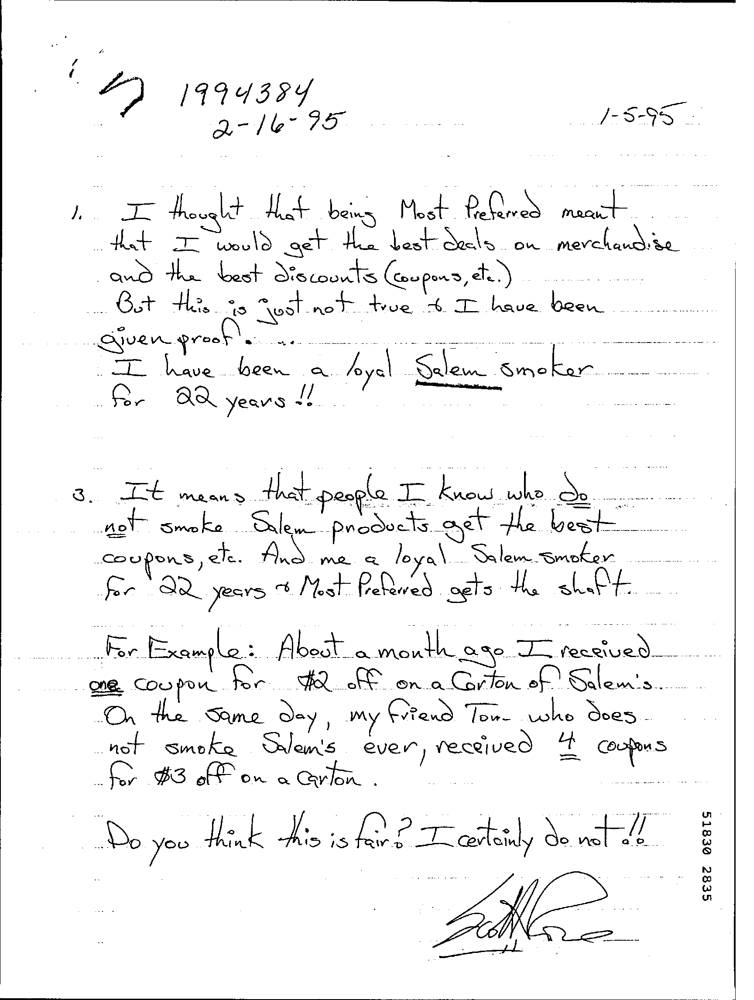 1994384
2-16-95
1-5-95
1. I thought that being Most Preferred meant
that I would get the best deals on merchandise
and the best discounts (coupons, etc.)
But this is just not true & I have been
given proof.
I have been a loyal Salem smoker
for 22 years!!
3. It means that people I know who do
not smoke Salem products get the best
coupons, etc. And me a loyal Salem smoker
for 22 years & Most Preferred gets the shaft.
For Example: About a month ago I received
one coupon for $2 off on a Carton of Salem's.
On the same day, my friend Tom who does
not smoke Salem's ever, received 4 coupons
for $3 off on a carton.
Do you think this is fair? I certainly do not!!
Scott
51830 2835